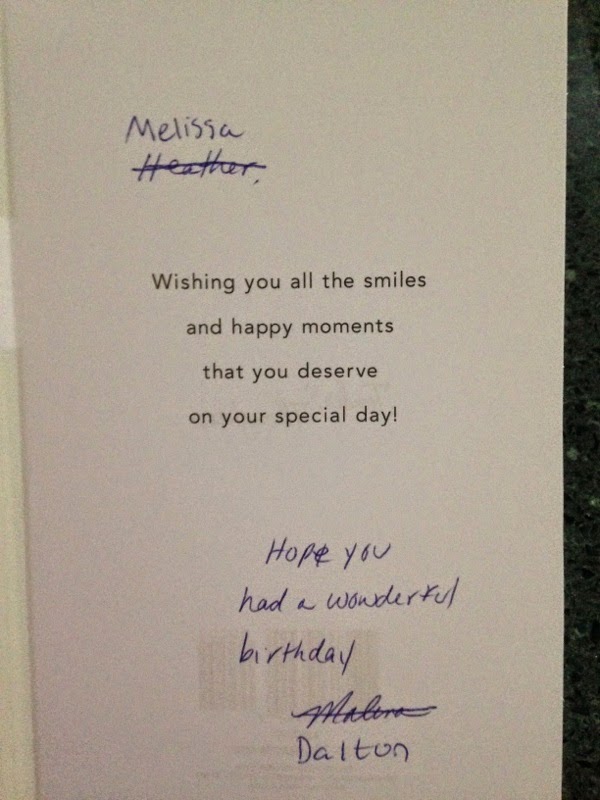 Melissa
Heather.
Wishing you all the smiles
and happy moments
that you deserve
on your special day!
Hope you
had a wonderful
birthday
Dalton